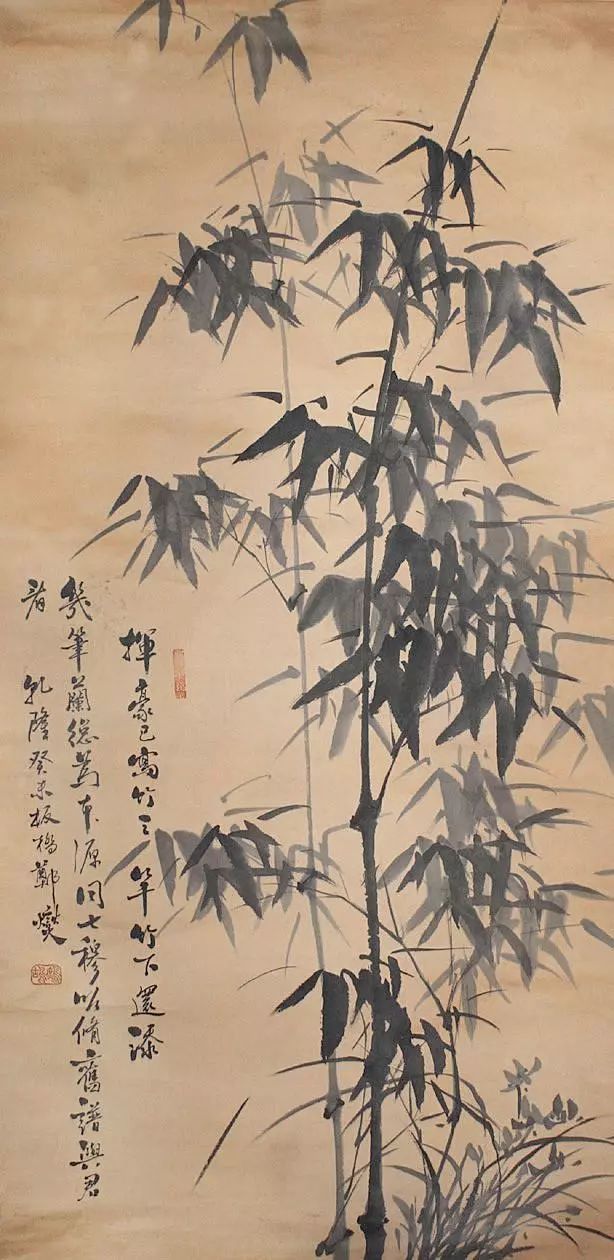 揮豪已寫竹三竿竹下還添
幾筆蘭總爲本源同七穆欲脩舊譜與君
看 乾隆癸未板橋鄭燮